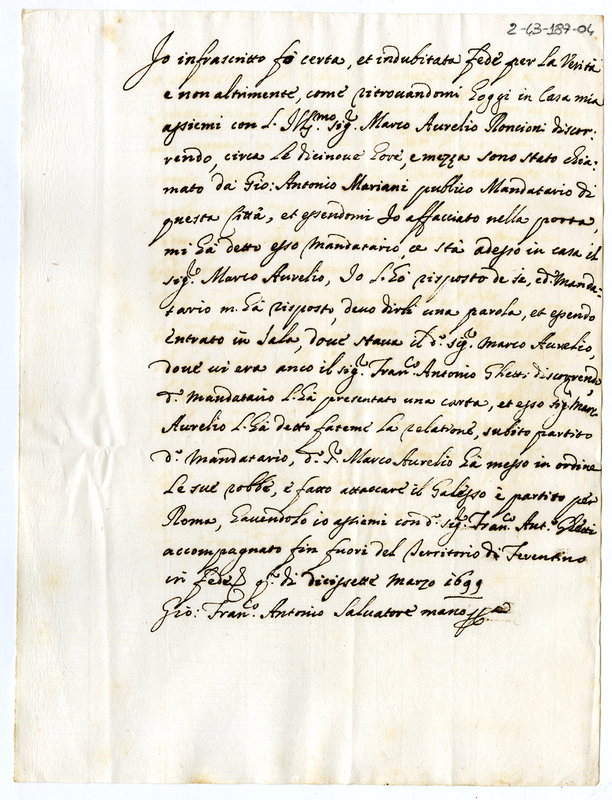 2-43-187-04
Io infrascritto fò certa, et indubitata fede per la Verità
e non altrimente, come ritrovandomi hoggi in Casa mia
assiemi con l'Ill.mo sig.r Marco Aurelio Roncioni discor-
rendo, circa le dicinove hore, e mezza sono stato chia-
mato da Gio: Antonio Mariani publico Mandatario di
questa Città, et essendomi Io affacciato nella porta,
mi hà detto esso Mandatario, ce stà adesso in casa il
sig.r Marco Aurelio, Io l'hò risposto de se, ed. Manda-
tario m'hà risposto, devo dirli una parola, et essendo
entrato in sala, dove stava il d.o sig.r Marco Aurelio,
dove vi era anco il sig.r Fran.co Antonio Ghetti discorrendo
d.o Mandatario l'hà presentato una carta, et esso sig.r Marc.
Aurelio l'hà detto fateme la relatione, subito partito
d.o Mandatario, d.o S.r Marco Aurelio hà messo in ordine
le sue robbe, e fatto attaccare il Galesso è partito per
Roma, havendolo io assiemi con d.o sig.r Fran.co Ant.o Ghetti
accompagnato fin fuori del Territorio di Ferentino
in fede q.o di dicissette Marzo 1699
Gio: Fran.co Antonio Salvatore mano pp.a